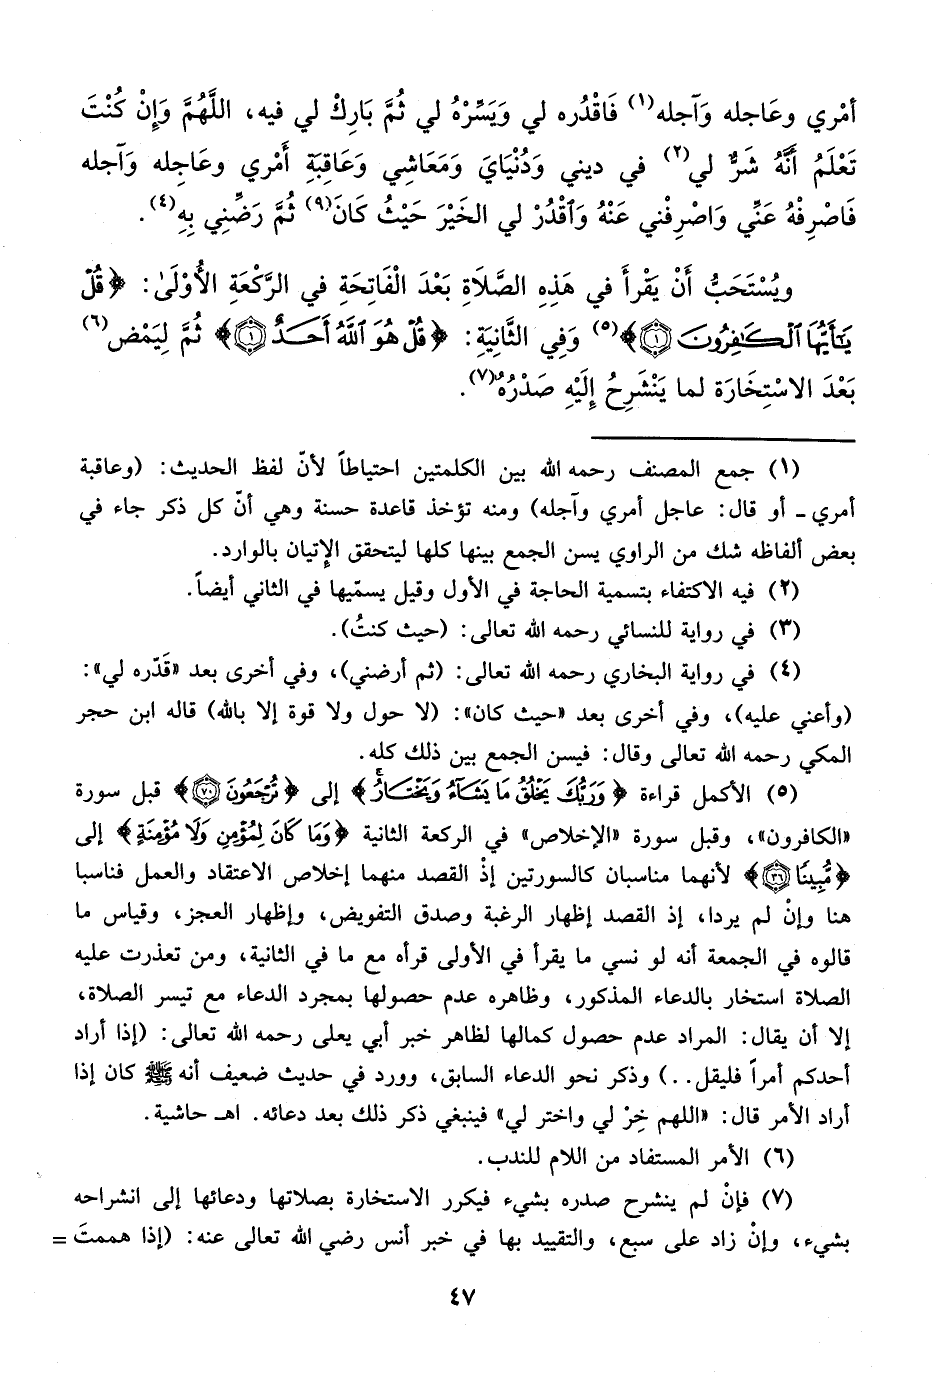 أمْري وعَاجله وَآجله(١) فَاقْدُره لي وَيَسِّرْهُ لي ثُمَّ بَارِكْ لي فيه، اللَّهُمَّ وَإِنْ كُنْتَ
تَعْلَمُ أَنَّهُ شَرٌّ لي(٢) في ديني وَدُنْيَايَ وَمَعَاشِي وَعَاقِبَةِ أَمْرِي وعَاجِله وَآجله
فَاصْرِفْهُ عَنِّي وَاصْرِفْني عَنْهُ وَٱقْدُرْ لي الخَيْرَ حَيْثُ كَانَ(٩) ثُمَّ رَضِّنِي بِهِ(٤).
ويُسْتَحَبُّ أَنْ يَقْرأَ في هَذِهِ الصَّلَاةِ بَعْدَ الْفَاتِحَةِ في الرَّكْعَةِ الأُوْلَىٰ: ﴿قُلْ
يَٰٓأَيُّهَا ٱلْكَٰفِرُونَ ۝١﴾(٥) وَفِي الثَّانِيَةِ: ﴿قُلْ هُوَ ٱللَّهُ أَحَدٌ ۝١﴾ ثُمَّ لِيَمْضِ(٦)
بَعْدَ الاسْتِخَارَة لما يَنْشَرِحُ إِلَيْهِ صَدْرُهُ(٧).
(١) جمع المصنف رحمه الله بين الكلمتين احتياطاً لأنّ لفظ الحديث: (وعاقبة
أمري ـ أو قال: عاجل أمري وآجله) ومنه تؤخذ قاعدة حسنة وهي أنّ كل ذكر جاء في
بعض ألفاظه شك من الراوي يسن الجمع بينها كلها ليتحقق الإتيان بالوارد.
(٢) فيه الاكتفاء بتسمية الحاجة في الأول وقيل يسمّيها في الثاني أيضاً.
(٣) في رواية للنسائي رحمه الله تعالى: (حيث كنتُ).
(٤) في رواية البخاري رحمه الله تعالى: (ثم أرضني)، وفي أخرى بعد «قَدّره لي»:
(وأعني عليه)، وفي أخرى بعد «حيث كان»: (لا حول ولا قوة إلا بالله) قاله ابن حجر
المكي رحمه الله تعالى وقال: فيسن الجمع بين ذلك كله.
(٥) الأكمل قراءة ﴿وَرَبُّكَ يَخْلُقُ مَا يَشَآءُ وَيَخْتَارُ﴾ إلى ﴿تُرْجَعُونَ ۝٧٠﴾ قبل سورة
«الكافرون»، وقبل سورة «الإخلاص» في الركعة الثانية ﴿وَمَا كَانَ لِمُؤْمِنٍ وَلَا مُؤْمِنَةٍ﴾ إلى
﴿مُّبِينًا ۝٣٦﴾ لأنهما مناسبان كالسورتين إذْ القصد منهما إخلاص الاعتقاد والعمل فناسبا
هنا وإنْ لم يردا، إذ القصد إظهار الرغبة وصدق التفويض، وإظهار العجز، وقياس ما
قالوه في الجمعة أنه لو نسي ما يقرأ في الأولى قرأه مع ما في الثانية، ومن تعذرت عليه
الصلاة استخار بالدعاء المذكور، وظاهره عدم حصولها بمجرد الدعاء مع تيسر الصلاة،
إلا أن يقال: المراد عدم حصول كمالها لظاهر خبر أبي يعلى رحمه الله تعالى: (إذا أراد
أحدكم أمراً فليقل..) وذكر نحو الدعاء السابق، وورد في حديث ضعيف أنه ﷺ كان إذا
أراد الأمر قال: «اللهم خِرْ لي واختر لي» فينبغي ذكر ذلك بعد دعائه. اهـ حاشية.
(٦) الأمر المستفاد من اللام للندب.
(٧) فإنْ لم ينشرح صدره بشيء فيكرر الاستخارة بصلاتها ودعائها إلى انشراحه
بشيء، وإنْ زاد على سبع، والتقييد بها في خبر أنس رضي الله تعالى عنه: (إذا هممتَ =
٤٧